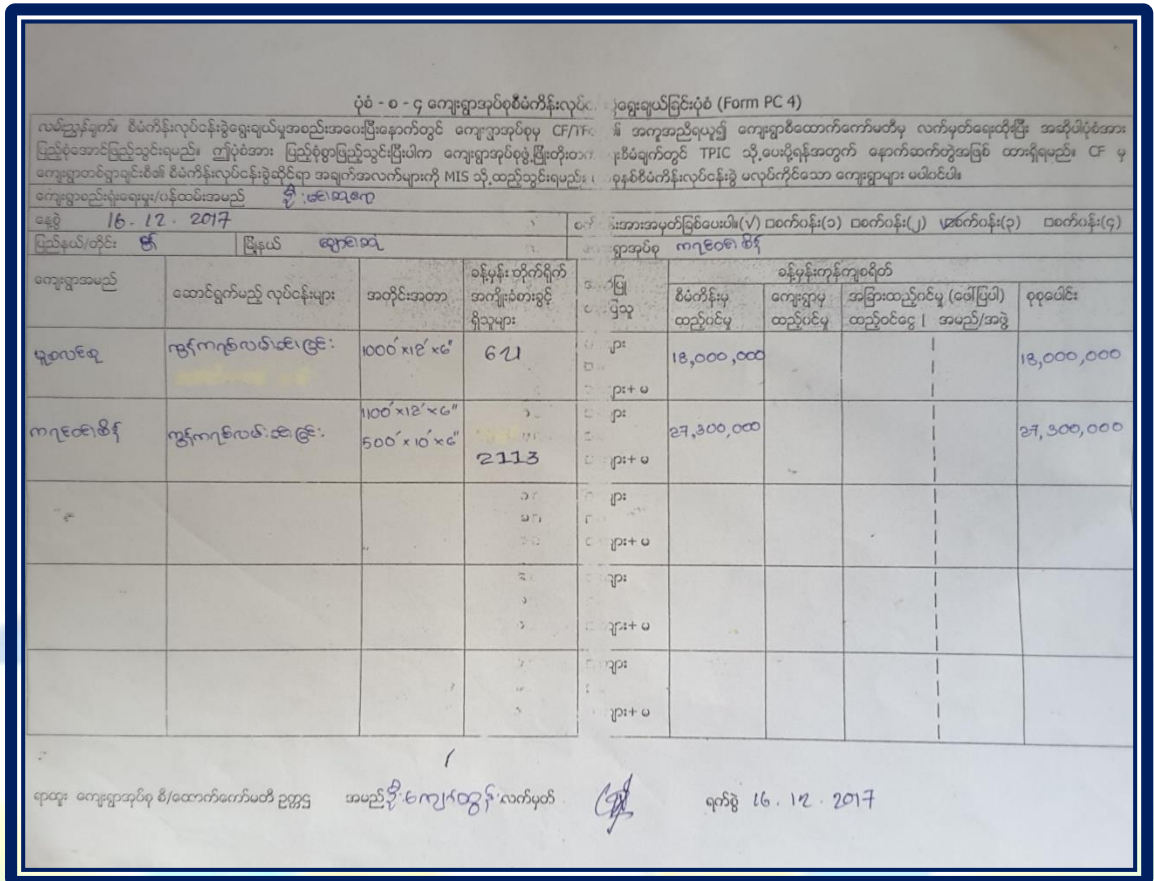 ပုံစံ - စ - ၄ ကျေးရွာအုပ်စုစီမံကိန်းလုပ်င ွဲရွေးချယ်ခြင်းပုံစံ (Form PC 4)
လမ်းညွှန်ချက်။ စီမံကိန်းလုပ်ငန်းခွဲရွေးချယ်မှုအစည်းအဝေးပြီးနောက်တွင် ကျေးရွာအုပ်စုမှ CF/TF အကူအညီရယူ၍ ကျေးရွာစီထောက်ကော်မတီမှ လက်မှတ်ရေးထိုးပြီး အဆိုပါပုံစံအား
ပြည့်စုံအောင်ဖြည့်သွင်းရမည်။ ဤပုံစံအား ပြည့်စုံစွာဖြည့်သွင်းပြီးပါက ကျေးရွာအုပ်စုဖွံ့ဖြိုးတိုးတက် စီမံချက်တွင် TPIC သို့ပေးပို့ရန်အတွက် နောက်ဆက်တွဲအဖြစ် ထားရှိရမည်။ CF မှ
ကျေးရွာတစ်ရွာချင်းစီ၏ စီမံကိန်းလုပ်ငန်းခွဲဆိုင်ရာ အချက်အလက်များကို MIS သို့ထည့်သွင်းရမည်။ စီမံကိန်းလုပ်ငန်းခွဲ မလုပ်ကိုင်သော ကျေးရွာများ မပါဝင်ပါ။
ကျေးရွာစည်းရုံးရေးမှူး/ဝန်ထမ်းအမည်
နေ့စွဲ 16. 12. 2017 အားအမှတ်ခြစ်ပေးပါ။(√) □စက်ဝန်း(၁) □စက်ဝန်း(၂) စက်ဝန်း(၃) □စက်ဝန်း(၄)
ပြည်နယ်/တိုင်း မြို့နယ် ရွာအုပ်စု
ကျေးရွာအမည် ဆောင်ရွက်မည့် လုပ်ငန်းများ အတိုင်းအတာ ခန့်မှန်း တိုက်ရိုက် အကျိုးခံစားခွင့် ရှိသူများ ခန့်မှန်းကုန်ကျစရိတ်
စီမံကိန်းမှ ထည့်ဝင်မှု ကျေးရွာမှ ထည့်ဝင်မှု အခြားထည့်ဝင်မှု (ဖော်ပြပါ) ထည့်ဝင်ငွေ | အမည်/အဖွဲ့ စုစုပေါင်း
ကွန်ကရစ်လမ်းခင်းခြင်း 1000' x 12' x 6" 621 ျား 18,000,000 18,000,000
ျား+ မ
1100' x 12' x 6" ျား
ကွန်ကရစ်လမ်းခင်းခြင်း 500' x 10' x 6" 27,300,000 27,300,000
2113 ျား+ မ
ျား
ျား+ မ
ျား
ျား+ မ
ျား
ျား+ မ
ရာထူး ကျေးရွာအုပ်စု စီ/ထောက်ကော်မတီ ဥက္ကဌ အမည် လက်မှတ် ရက်စွဲ 16. 12. 2017